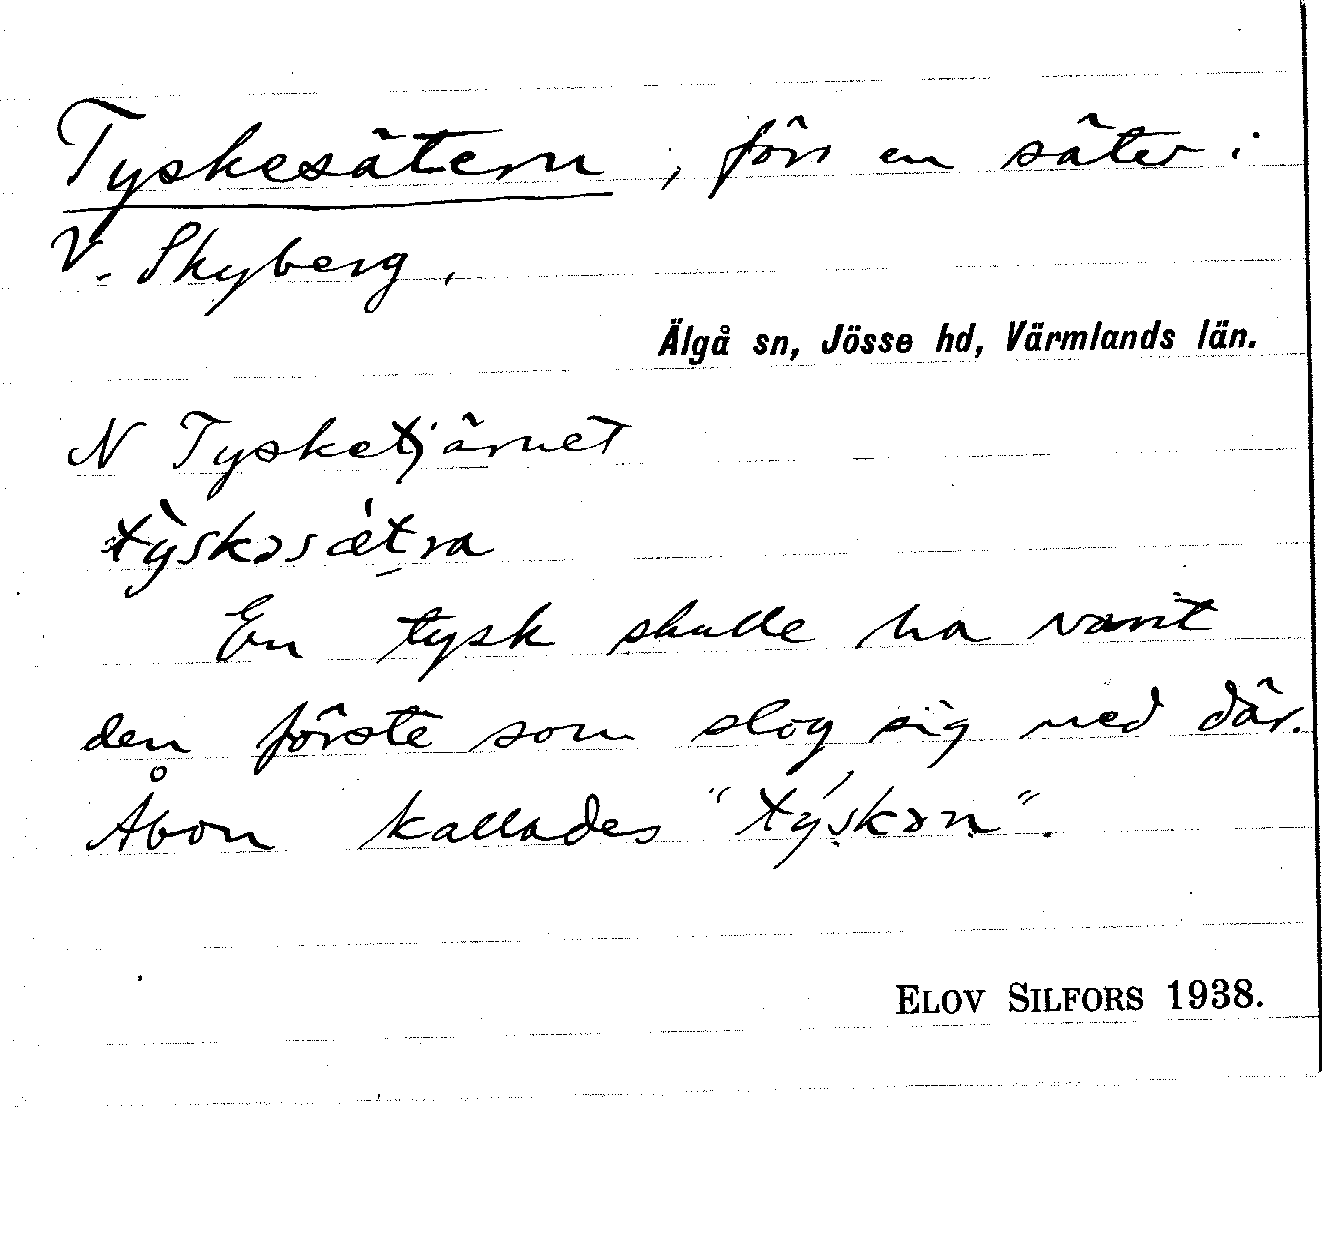 Tyskesätern, förr en säter i
V. Skyberg,
Älgå sn, Jösse hd, Värmlands län.
N Tysketjärnet
tỳskəsǽtra
En tysk skulle ha varit
den förste som slog sig ned där.
Åbon kallades "týskən".
ELOV SILFORS 1938.